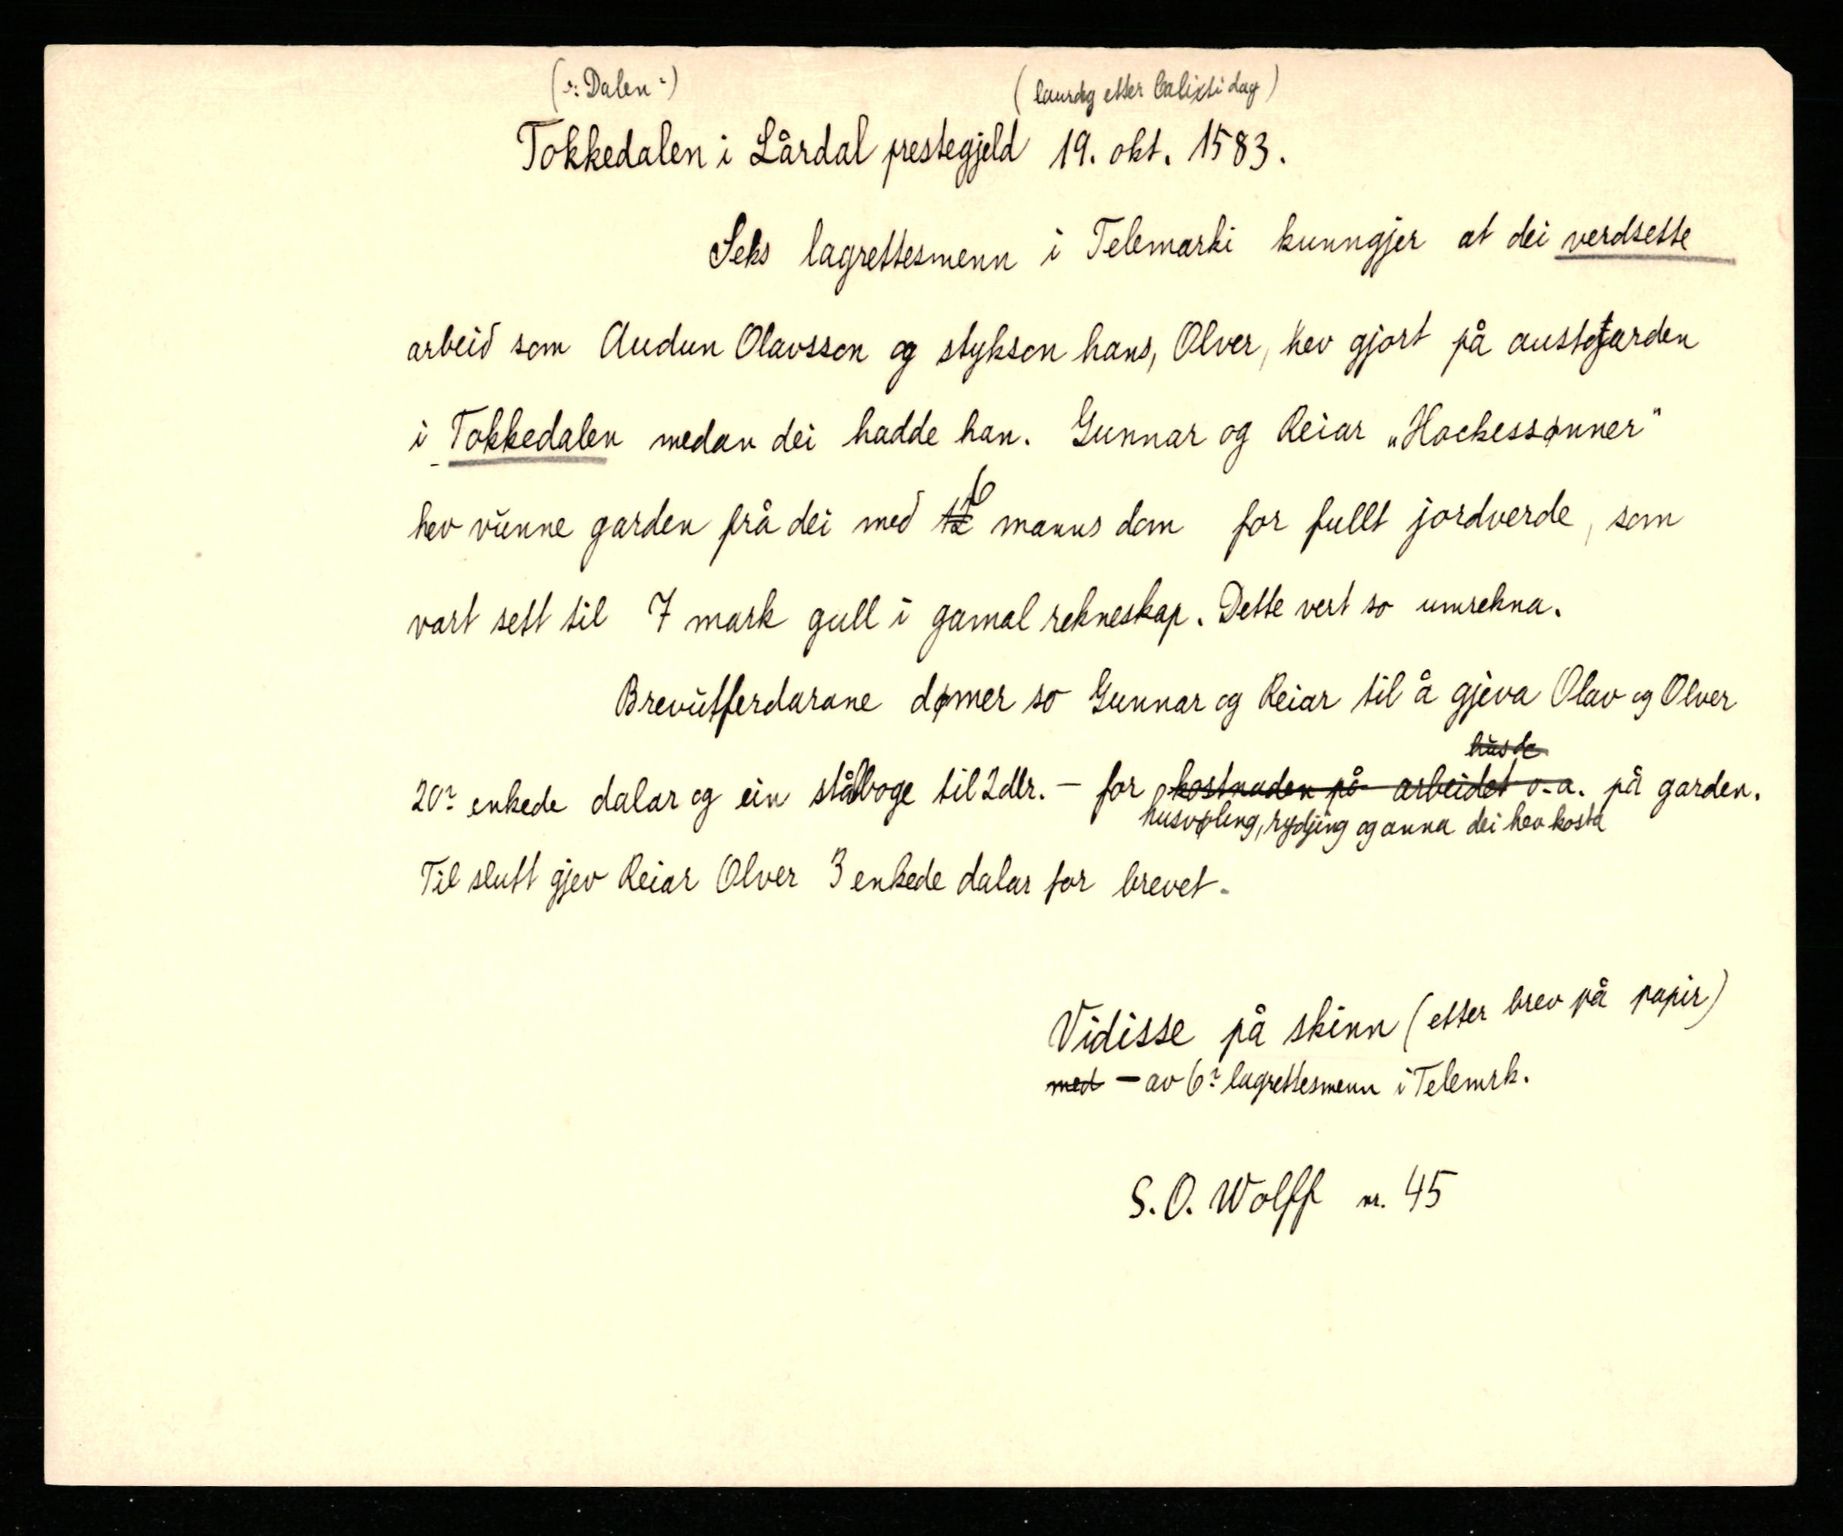 (ɔ: Dalen :) (laurdag etter Calixti dag)
Tokkedalen i Lårdal prestegjeld 19. okt. 1583.
Seks lagrettesmenn i Telemarki kunngjer at dei verdsette
arbeid som Audun Olavsson og stykson hans, Olver, hev gjort på austgarden
i Tokkedalen medan dei hadde han. Gunnar og Reiar „Hackessønner"
hev vunne garden frå dei med 6 manns dom for fullt jordverde, som
vart sett til 7 mark gull i gamal rekneskap. Dette vert so umrekna.
Brevutferdarane dømer so Gunnar og Reiar til å gjeva Olav og Olver
husde
20 enkede dalar og ein stålboge til 2 dlr. – for kostnaden på arbeidet o.a. på garden.
husvøling, rydjing og anna dei hev kosta
Til slutt gjev Reiar Olver 3 enkede dalar for brevet.
Vidisse på skinn (etter brev på papir)
med – av 6 lagrettesmenn i Telemrk.
S. O. Wolff nr. 45